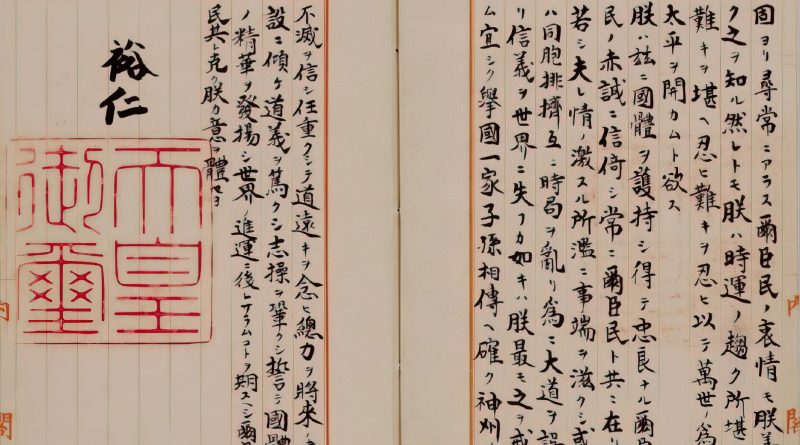 固ヨリ尋常ニアラス爾臣民ノ衷情モ朕善
ク之ヲ知ル然レトモ朕ハ時運ノ趨ク所堪
難キヲ堪ヘ忍ヒ難キヲ忍ヒ以テ萬世ノ爲
太平ヲ開カムト欲ス
朕ハ茲ニ國體ヲ護持シ得テ忠良ナル爾
民ノ赤誠ニ信倚シ常ニ爾臣民ト共ニ在リ
若シ夫レ情ノ激スル所濫ニ事端ヲ滋クシ或
ハ同胞排擠互ニ時局ヲ亂リ爲ニ大道ヲ誤
リ信義ヲ世界ニ失フカ如キハ朕最モ之ヲ戒
ム宜シク擧國一家子孫相傳ヘ確ク神州
不滅ヲ信シ任重クシテ道遠キヲ念ヒ總力ヲ將來
設ニ傾ケ道義ヲ篤クシ志操ヲ鞏クシ誓テ國體
ノ精華ヲ發揚シ世界ノ進運ニ後レサラムコトヲ期スヘシ爾
民其レ克ク朕カ意ヲ體セヨ
裕仁
天皇
御璽
内閣
内閣